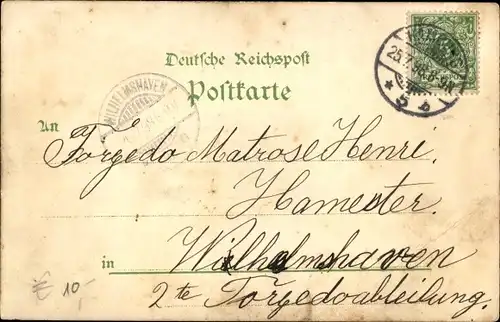 Deutsche Reichspost
Postkarte
WILHELMSHAVEN
25.7.
* 5 b
An
Torpedo Matrose Henri
Hamester.
in Wilhelmshaven
2te Torpedoabteilung.
€ 10,-